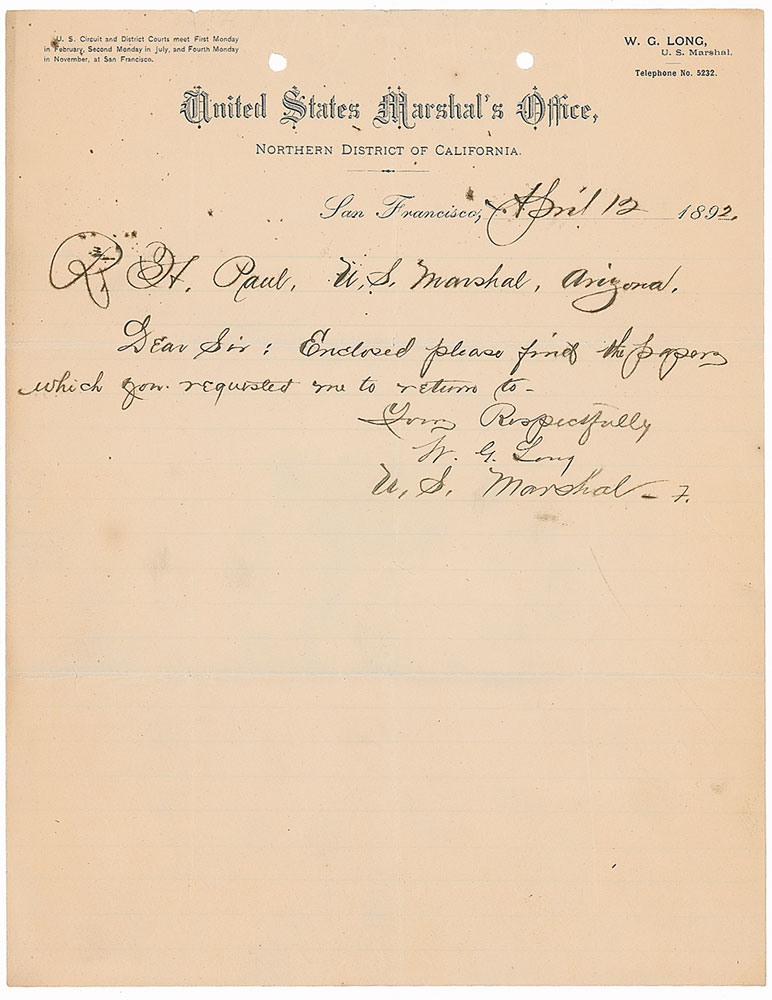 U. S. Circuit and District Courts meet First Monday
in February, Second Monday in July, and Fourth Monday
in November, at San Francisco.
W. G. LONG,
U. S. Marshal.
Telephone No. 5232.
United States Marshal's Office,
NORTHERN DISTRICT OF CALIFORNIA.
San Francisco, April 12 1892.
R. H. Paul, U. S. Marshal, Arizona.
Dear Sir: Enclosed please find the papers
which you requested me to return to -
Yours Respectfully
W. G. Long
U. S. Marshal -